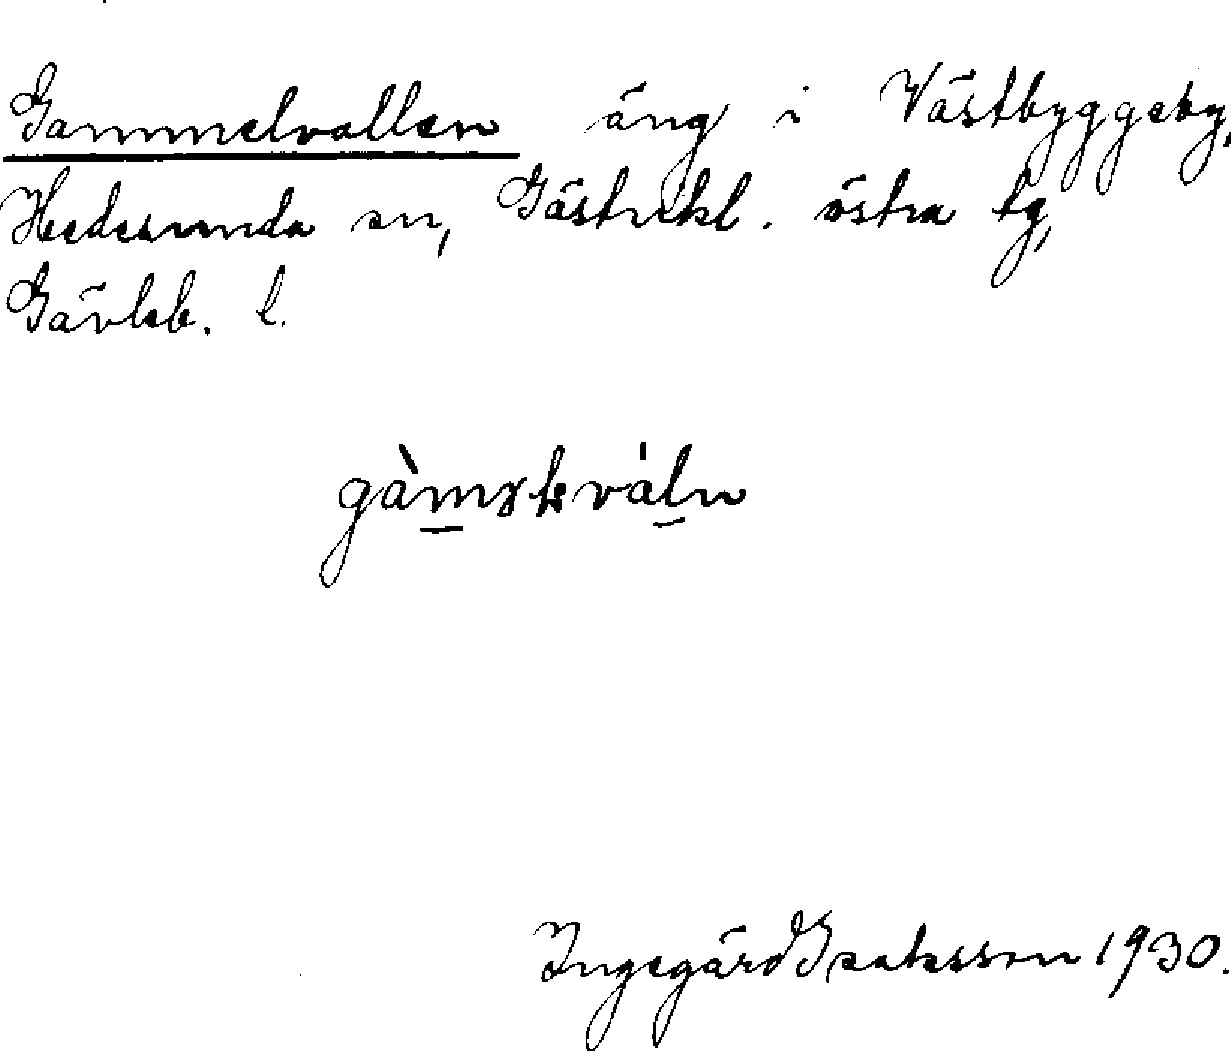 Gammelvallen äng i Västbyggeby,
Hedesunda sn, Gästrikl. östra tg,
Gävleb. l.
Ingegärd Isaksson 1930.